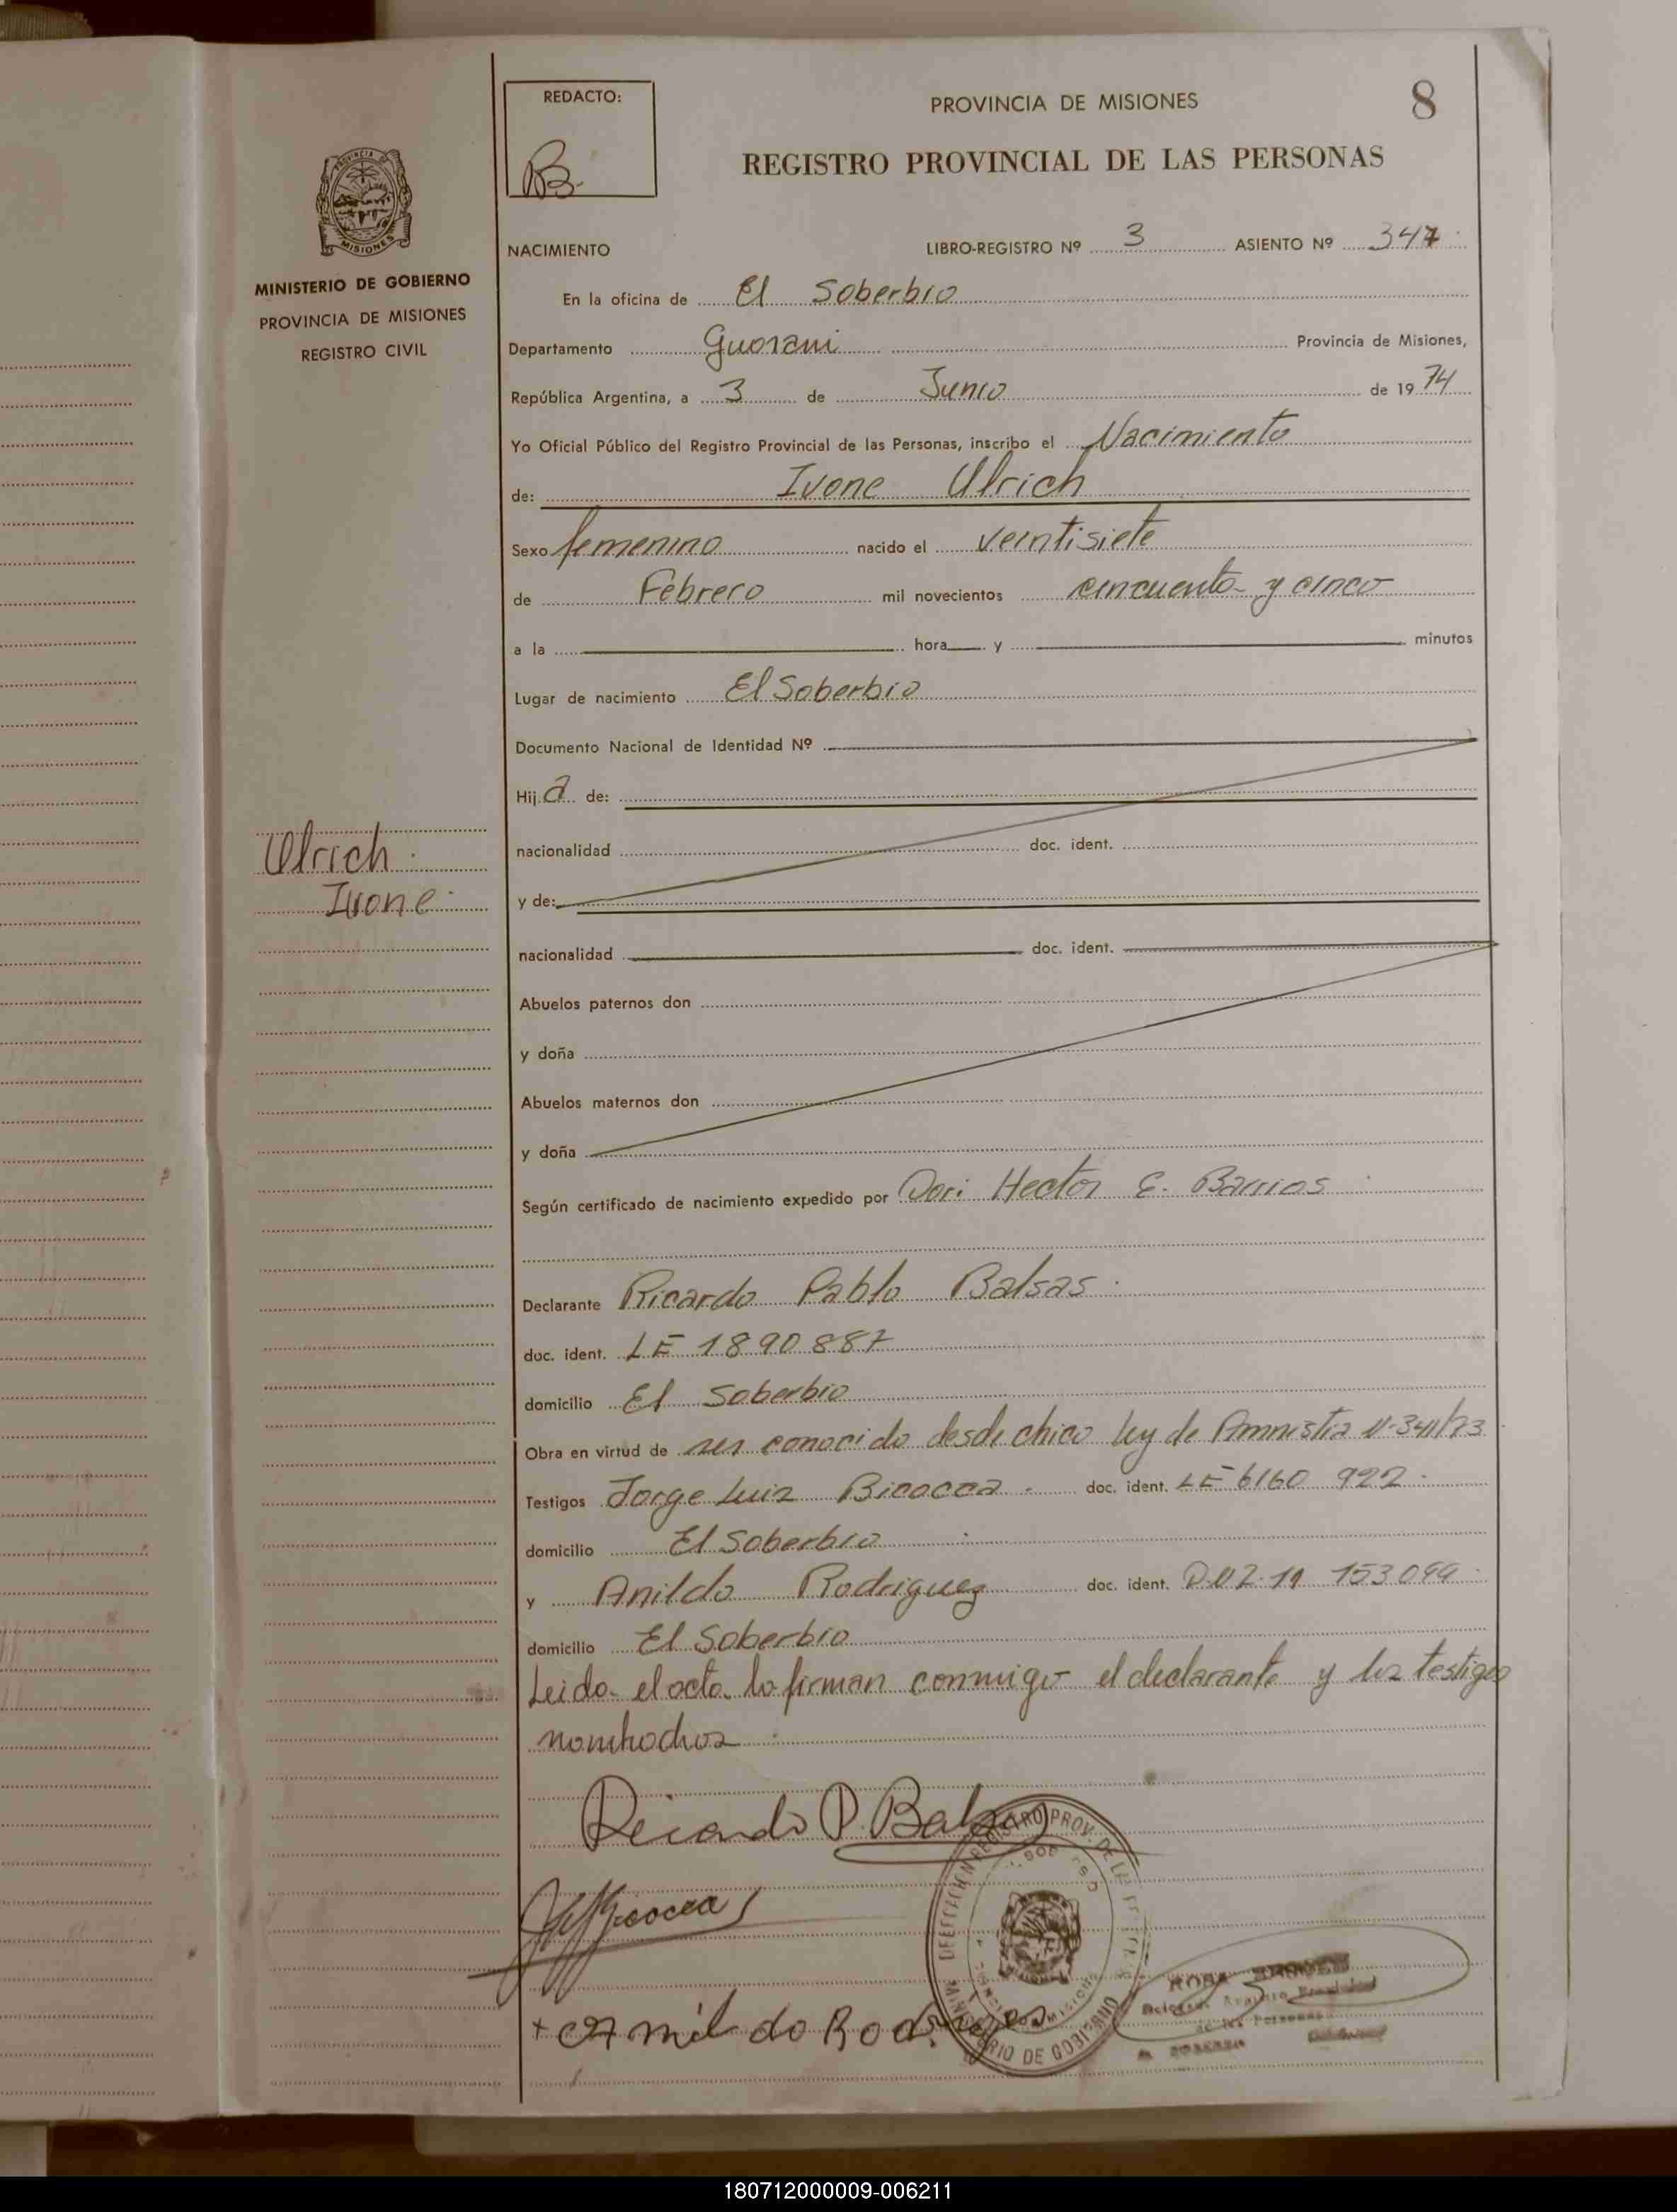 8
REDACTO:
PROVINCIA DE MISIONES
REGISTRO PROVINCIAL DE LAS PERSONAS
PROVINCIA
MISIONES
MINISTERIO DE GOBIERNO
PROVINCIA DE MISIONES
REGISTRO CIVIL
Ulrich
Ivone
NACIMIENTO LIBRO-REGISTRO Nº 3 ASIENTO Nº 347
En la oficina de El Soberbio
Departamento Guarani Provincia de Misiones,
República Argentina, a 3 de Junio de 1974
Yo Oficial Público del Registro Provincial de las Personas, inscribo el Nacimiento
de: Ivone Ulrich
Sexo femenino nacido el veintisiete
de Febrero mil novecientos cincuenta y cinco
a la hora y minutos
Lugar de nacimiento El Soberbio
Documento Nacional de Identidad Nº
Hija de:
nacionalidad doc. ident.
y de:
nacionalidad doc. ident.
Abuelos paternos don
y doña
Abuelos maternos don
y doña
Según certificado de nacimiento expedido por Hector E. Barrios
Declarante Ricardo Pablo Balsas
doc. ident. LE 1890887
domicilio El Soberbio
Obra en virtud de ser conocido desde chico ley de Amnistia
Testigos Jorge Luiz Bicocca doc. ident. LE 6160 922
domicilio El Soberbio
y Anildo Rodriguez doc. ident.
domicilio El Soberbio
Leida el acta la firman conmigo el declarante y los testigos
nombrados
Ricardo P. Balsas
+ Rod
MINISTERIO DE GOBIERNO
180712000009-006211